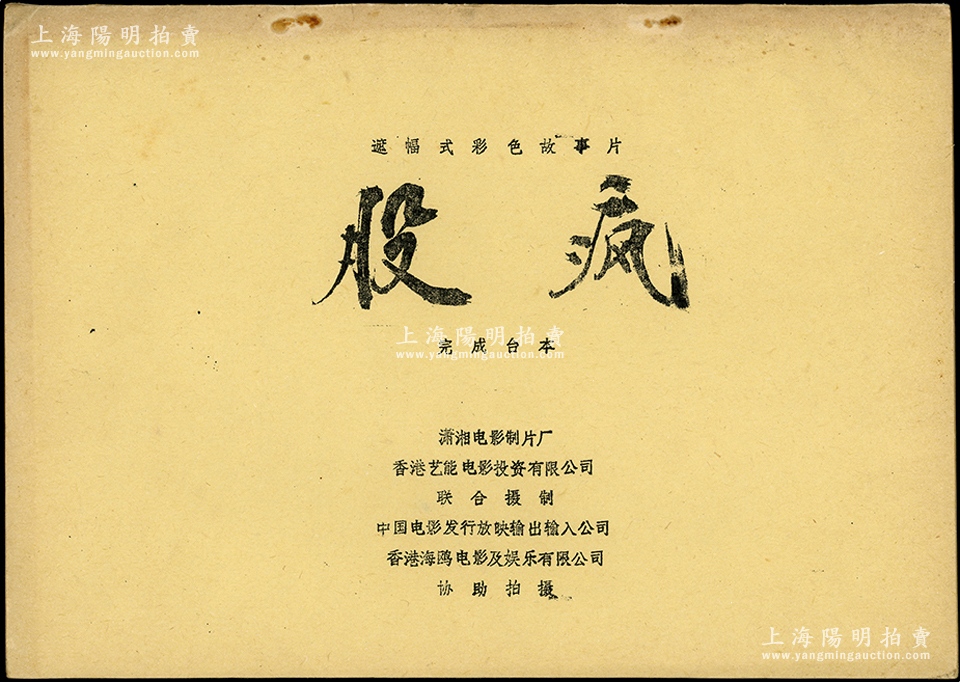 上海陽明拍賣
www.yangmingauction.com
上海陽明拍賣
www.yangmingauction.com
遮幅式彩色故事片
股疯
上海陽明拍賣
www.yangmingauction.com
完成台本
潇湘电影制片厂
香港艺能电影投资有限公司
联合摄制
中国电影发行放映输出输入公司
香港海鸥电影及娱乐有限公司
协助拍摄
上海陽明拍賣
www.yangmingauction.com